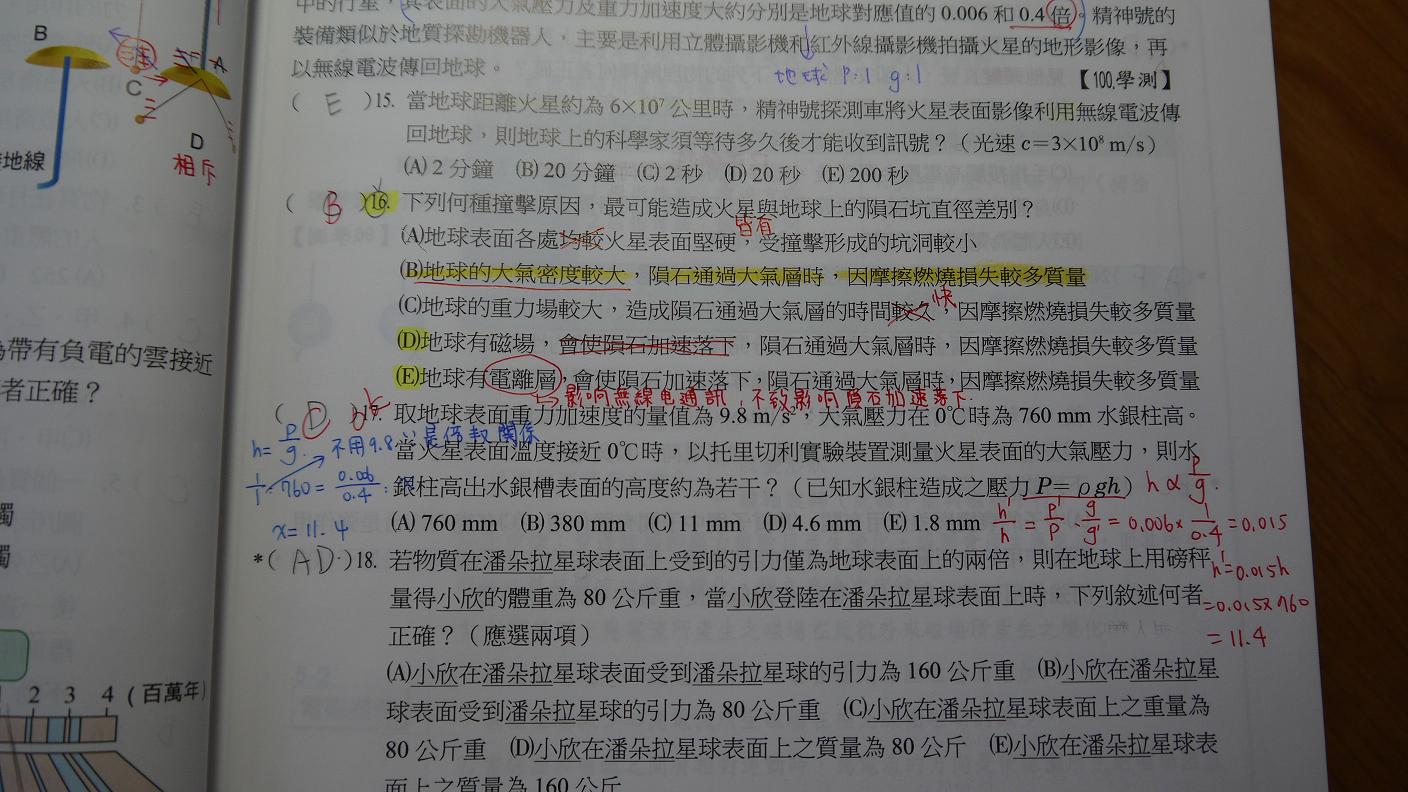 中的行星，其表面的大氣壓力及重力加速度大約分別是地球對應值的 0.006 和 0.4 倍。精神號的
裝備類似於地質探勘機器人，主要是利用立體攝影機和紅外線攝影機拍攝火星的地形影像，再
以無線電波傳回地球。
地球 P:1 g:1
【100.學測】
( E )15. 當地球距離火星約為 6×10⁷ 公里時，精神號探測車將火星表面影像利用無線電波傳
回地球，則地球上的科學家須等待多久後才能收到訊號？（光速 c＝3×10⁸ m/s）
(A) 2 分鐘 (B) 20 分鐘 (C) 2 秒 (D) 20 秒 (E) 200 秒
( B )16. 下列何種撞擊原因，最可能造成火星與地球上的隕石坑直徑差別？
皆有
(A)地球表面各處均較火星表面堅硬，受撞擊形成的坑洞較小
(B)地球的大氣密度較大，隕石通過大氣層時，因摩擦燃燒損失較多質量
快
(C)地球的重力場較大，造成隕石通過大氣層的時間較久，因摩擦燃燒損失較多質量
(D)地球有磁場，會使隕石加速落下，隕石通過大氣層時，因摩擦燃燒損失較多質量
(E)地球有電離層，會使隕石加速落下，隕石通過大氣層時，因摩擦燃燒損失較多質量
影响無線电通訊，不致影响隕石加速落下.
( D C )17. 取地球表面重力加速度的量值為 9.8 m/s²，大氣壓力在 0℃時為 760 mm 水銀柱高。
當火星表面溫度接近 0℃時，以托里切利實驗裝置測量火星表面的大氣壓力，則水
銀柱高出水銀槽表面的高度約為若干？（已知水銀柱造成之壓力 P＝ρgh）
(A) 760 mm (B) 380 mm (C) 11 mm (D) 4.6 mm (E) 1.8 mm
h = P/g. 不用9.8 ∵是倍數關係
1/1 : 760 = 0.006/0.4 : x
x = 11.4
h ∝ P/g.
h'/h = P'/P · g/g' = 0.006 × 1/0.4 = 0.015
h' = 0.015h
= 0.015×760
= 11.4
*( AD )18. 若物質在潘朵拉星球表面上受到的引力僅為地球表面上的兩倍，則在地球上用磅秤
量得小欣的體重為 80 公斤重，當小欣登陸在潘朵拉星球表面上時，下列敘述何者
正確？（應選兩項）
(A)小欣在潘朵拉星球表面受到潘朵拉星球的引力為 160 公斤重 (B)小欣在潘朵拉星
球表面受到潘朵拉星球的引力為 80 公斤重 (C)小欣在潘朵拉星球表面上之重量為
80 公斤重 (D)小欣在潘朵拉星球表面上之質量為 80 公斤 (E)小欣在潘朵拉星球表
面上之質量為 160 公斤
B
C
A
D
相斥
地線
帶有負電的雲接近
者正確？
觸
觸
2 3 4 (百萬年)